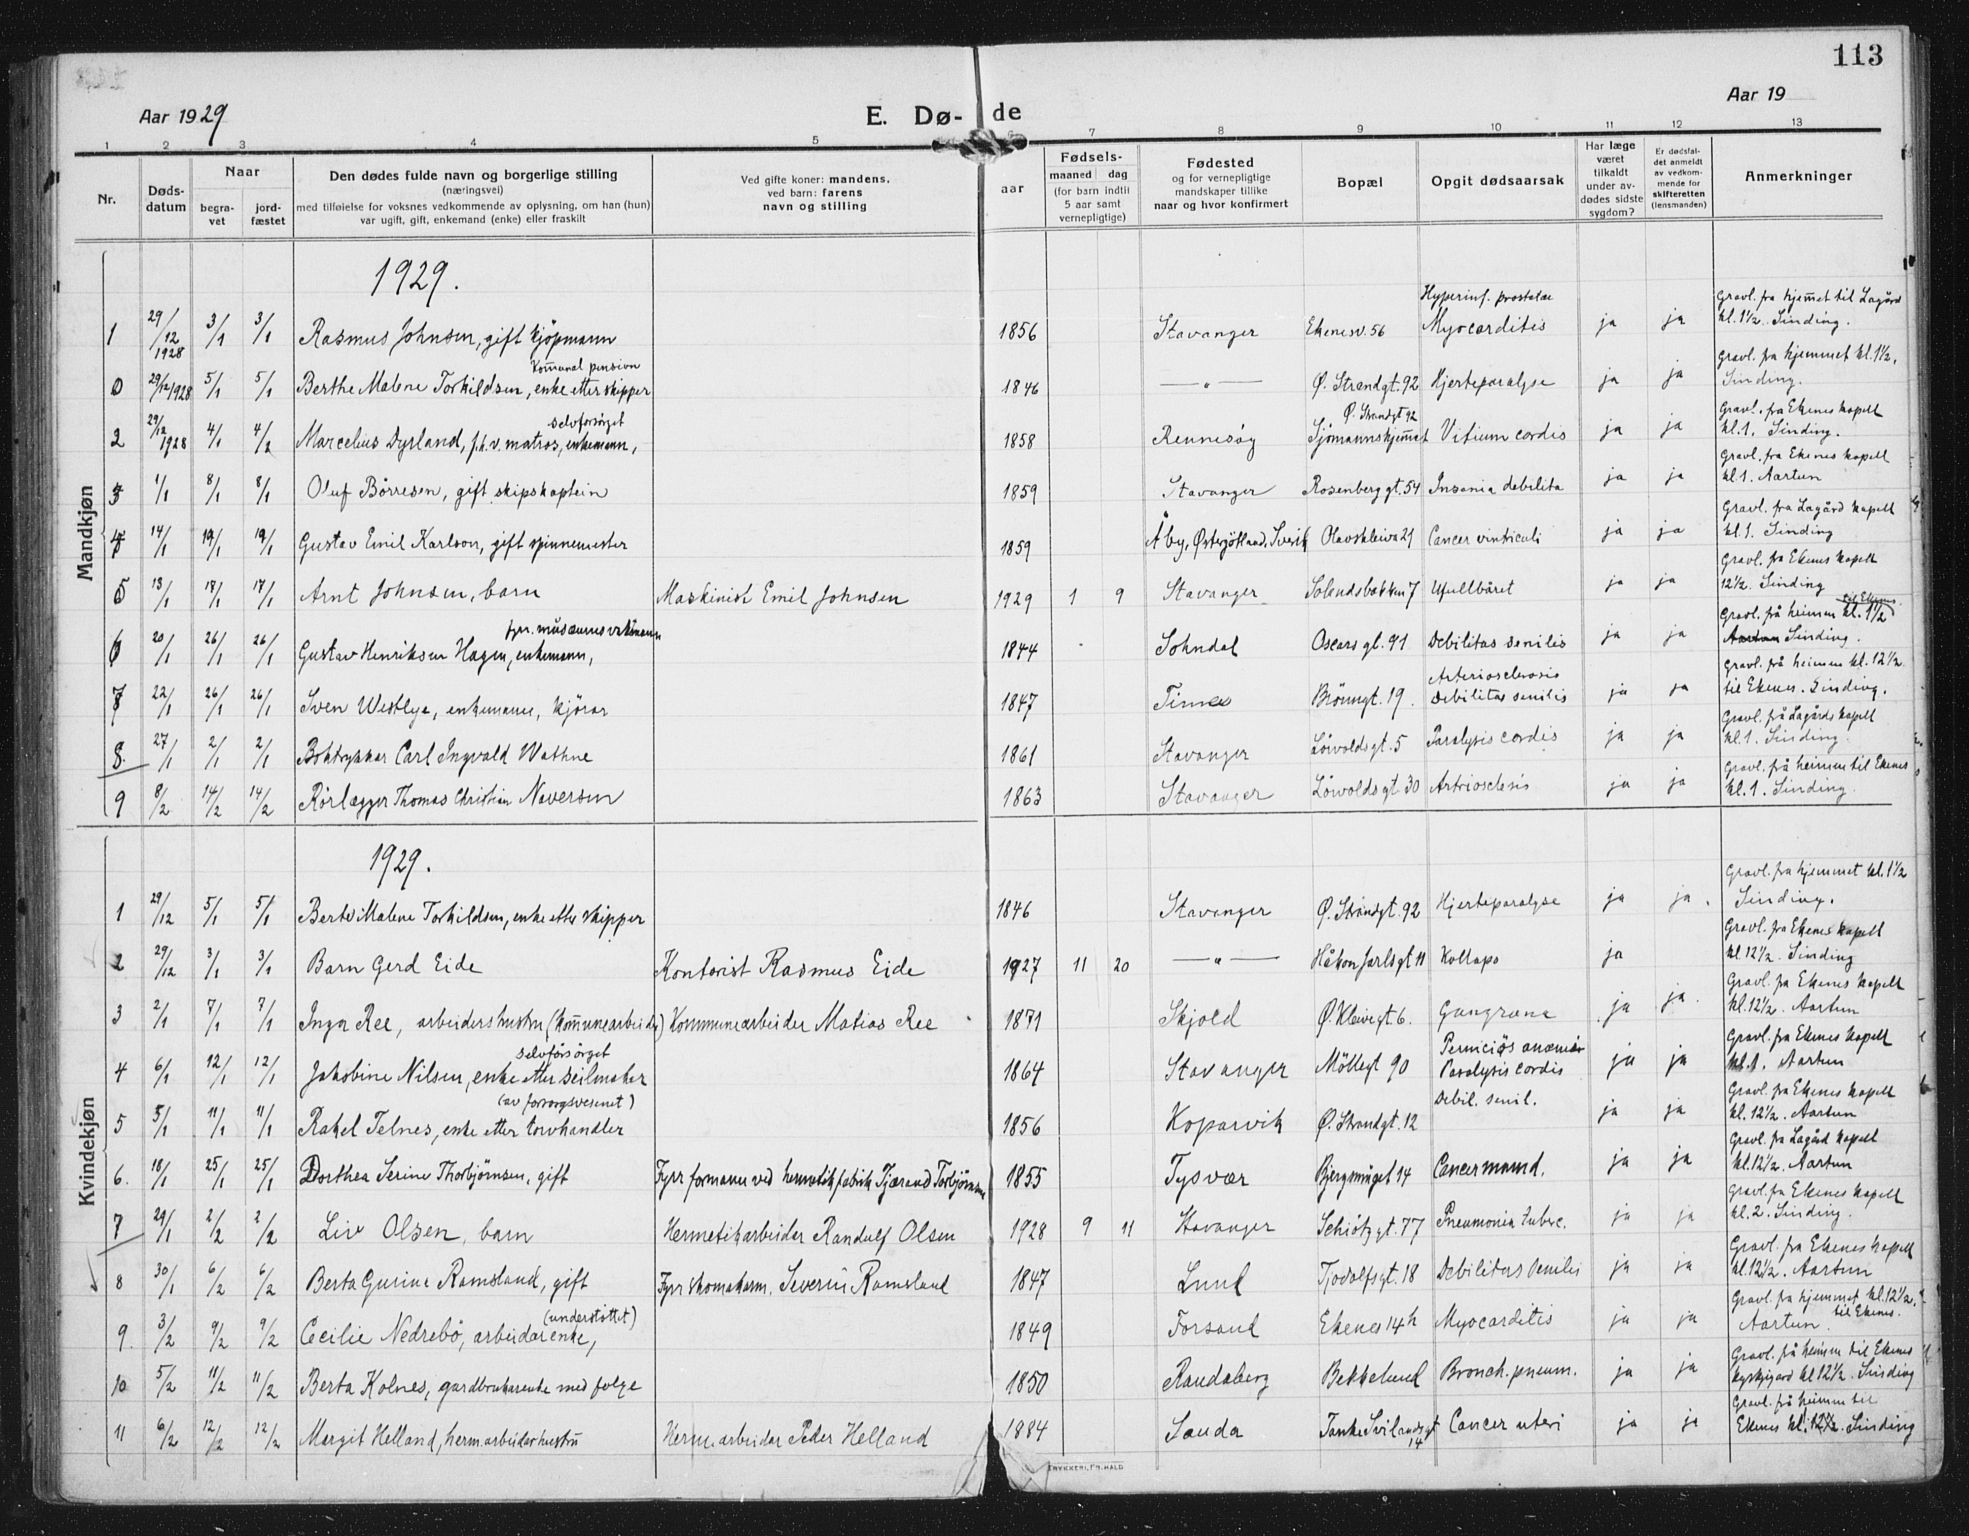 113
Aar 1929
E. Dø- de
Aar 19
1 2 3 4 5 6 7 8 9 10 11 12 13
Nr.
Døds-
datum
Naar
begra-
vet
jord-
fæstet
Den dødes fulde navn og borgerlige stilling
(næringsvei)
med tilføielse for voksnes vedkommende av oplysning, om han (hun)
var ugift, gift, enkemand (enke) eller fraskilt
Ved gifte koner: mandens,
ved barn: farens
navn og stilling
Fødsels-
aar
maaned dag
(for barn indtil
5 aar samt
vernepligtige)
Fødested
og for vernepligtige
mandskaper tillike
naar og hvor konfirmert
Bopæl
Opgit dødsaarsak
Har læge
været
tilkaldt
under av-
dødes sidste
sygdom?
Er dødsfal-
det anmeldt
av vedkom-
mende for
skifteretten
(lensmanden)
Anmerkninger
Mandkjøn
1929.
Hyperinf. prostatae Gravl. fra hjemmet til Lagård
1 29/12 1928 3/1 3/1 Rasmus Johnsen, gift kjøpmann 1856 Stavanger Ekenesv. 56 Myocarditis ja ja kl. 1½. Sinding.
kommunal pension Gravl. fra hjemmet kl. 1½,
0 29/12 1928 5/1 5/1 Berthe Malene Torkildsen, enke etter skipper 1846 — „ — Ø. Strandgt. 92 Hjerteparalyse ja ja Sinding.
selvforsørget Ø. Strandgt 92 Gravl. fra Ekenes kapell
2 29/12 1928 4/1 4/2 Marcelius Dyrland, f.h.v. matros, enkemann, 1858 Rennesøy Sjømannshjemmet Vitium cordis ja ja kl. 1. Sinding.
Gravl. fra Ekenes kapell
3 1/1 8/1 8/1 Oluf Børresen, gift skipskaptein 1859 Stavanger Rosenberggt. 54 Insania debilita ja ja kl. 1. Aartun
Gravl. fra Lagård kapell
4 14/1 19/1 19/1 Gustav Emil Karlson, gift spinnemester 1859 Åby, Østergötland, Sverik Olavskleiva 21 Cancer vintriculi ja ja kl. 1. Sinding
Gravl. fra Ekenes kapell
5 13/1 18/1 17/1 Arnt Johnsen, barn Maskinist Emil Johnsen 1929 1 9 Stavanger Solandsbakken 7 Ufullbåret ja ja 12½. Sinding
til Ekenes
Gravl. frå heimen kl. 1½
6 20/1 26/1 26/1 Gustav Henriksen Hagen, enkemann, 1844 Sohndal Oscars gt. 91 Debilitas senilis ja ja Aartun Sinding.
Arteriosclerosis Gravl. frå heimen kl. 12½.
7 22/1 26/1 26/1 Sven Westlye, enkemann, kjørar 1847 Time Brønngt. 19. Debilitas senilis ja ja til Ekenes. Sinding.
Gravl. frå Lagårds kapell
8. 27/1 2/1 2/1 Boktrykkar Carl Ingvald Wathne 1861 Stavanger Løvoldsgt. 5 Paralysis cordis ja ja kl. 1. Sinding.
Gravl. frå heimen til Ekenes
9 8/2 14/2 14/2 Rørlegger Thomas Christian Naversen 1863 Stavanger Løvoldsgt 30 Artriosclesis ja ja kl. 1. Sinding.
Kvindekjøn
1929.
Gravl. fra hjemmet kl. 1½
1 29/12 5/1 5/1 Berte Malene Torkildsen, enke etter skipper 1846 Stavanger Ø. Strandgt. 92 Hjerteparalyse ja ja. Sinding.
Gravl. fra Ekenes kapell
2 29/12 3/1 3/1 Barn Gerd Eide Kontorist Rasmus Eide 1927 11 20 — „ — Håkon Jarlsgt 11 Kollaps ja kl. 12½. Sinding
Gravl. fra Ekenes kapell
3 2/1 7/1 7/1 Inga Ree, arbeidershustru (kommunearbeider) Kommunearbeider Matias Ree 1871 Skjold Ø. Kleivegt. 6. Gangræna ja ja. kl. 12½. Aartun
selvforsørget Perniciøs anæmi Gravl. fra Ekenes kapell
4 6/1 12/1 12/1 Jakobine Nilsen, enke etter seilmaker 1864 Stavanger Møllegt 90 Paralysis cordis ja ja kl. 1. Aartun
(av forsorgsvesenet) Debil. senil. Gravl. fra Ekenes kapell
5 5/1 11/1 11/1 Rakel Telnes, enke etter torvhandler 1856 Kopervik Ø. Strandgt. 12 ja ja kl. 12½. Aartun
Gravl. fra Lagård kapell
6. 18/1 25/1 25/1 Dorthea Serine Thorbjørnsen, gift Fyrr formann ved hermetikfabrik Tjærand Torbjørnsen 1855 Tysvær Bjergsmuget 14 Cancer mamd. ja ja kl. 12½. Aartun
Gravl. fra Ekenes kapell
7 29/1 2/2 2/2 Liv Olsen, barn Hermetikarbeider Randulf Olsen 1928 9 11 Stavanger Schiøtzgt. 77 Pneumonia tuberc. ja ja kl. 2. Sinding.
Gravl. fra Ekenes kapell
8 30/1 6/2 6/2 Berta Gurine Ramsland, gift Fyrr skomakarm. Severin Ramsland 1847 Lund Tjodolfsgt. 18 Debilitas senilis ja ja kl. 12½. Aartun
(understøttet) Gravl. fra hjemmet kl. 12½.
9. 3/2 9/2 9/2 Cecilie Nedrebö, arbeidarenke, 1849 Forsand Ekenes 14h Myocarditis ja ja Aartun. til Ekenes.
Gravl. frå heimen til Ekenes
10 5/2 11/2 11/2 Berta Kolnes, gardbrukarenke med folge 1850 Randaberg Bekkelund Bronch. pneum. ja ja kyrkjegard kl 12½. Sinding
Gravl. frå heimen til
11 6/2 12/2 12/2 Margit Helland, herm. arbeidarhustru Herm. arbeidar Peder Helland 1884 Sauda Tanke Svilandsgt 14 Cancer uteri ja ja Ekenes kl. 12½. Sinding
TRYKKERI. FR. HALD